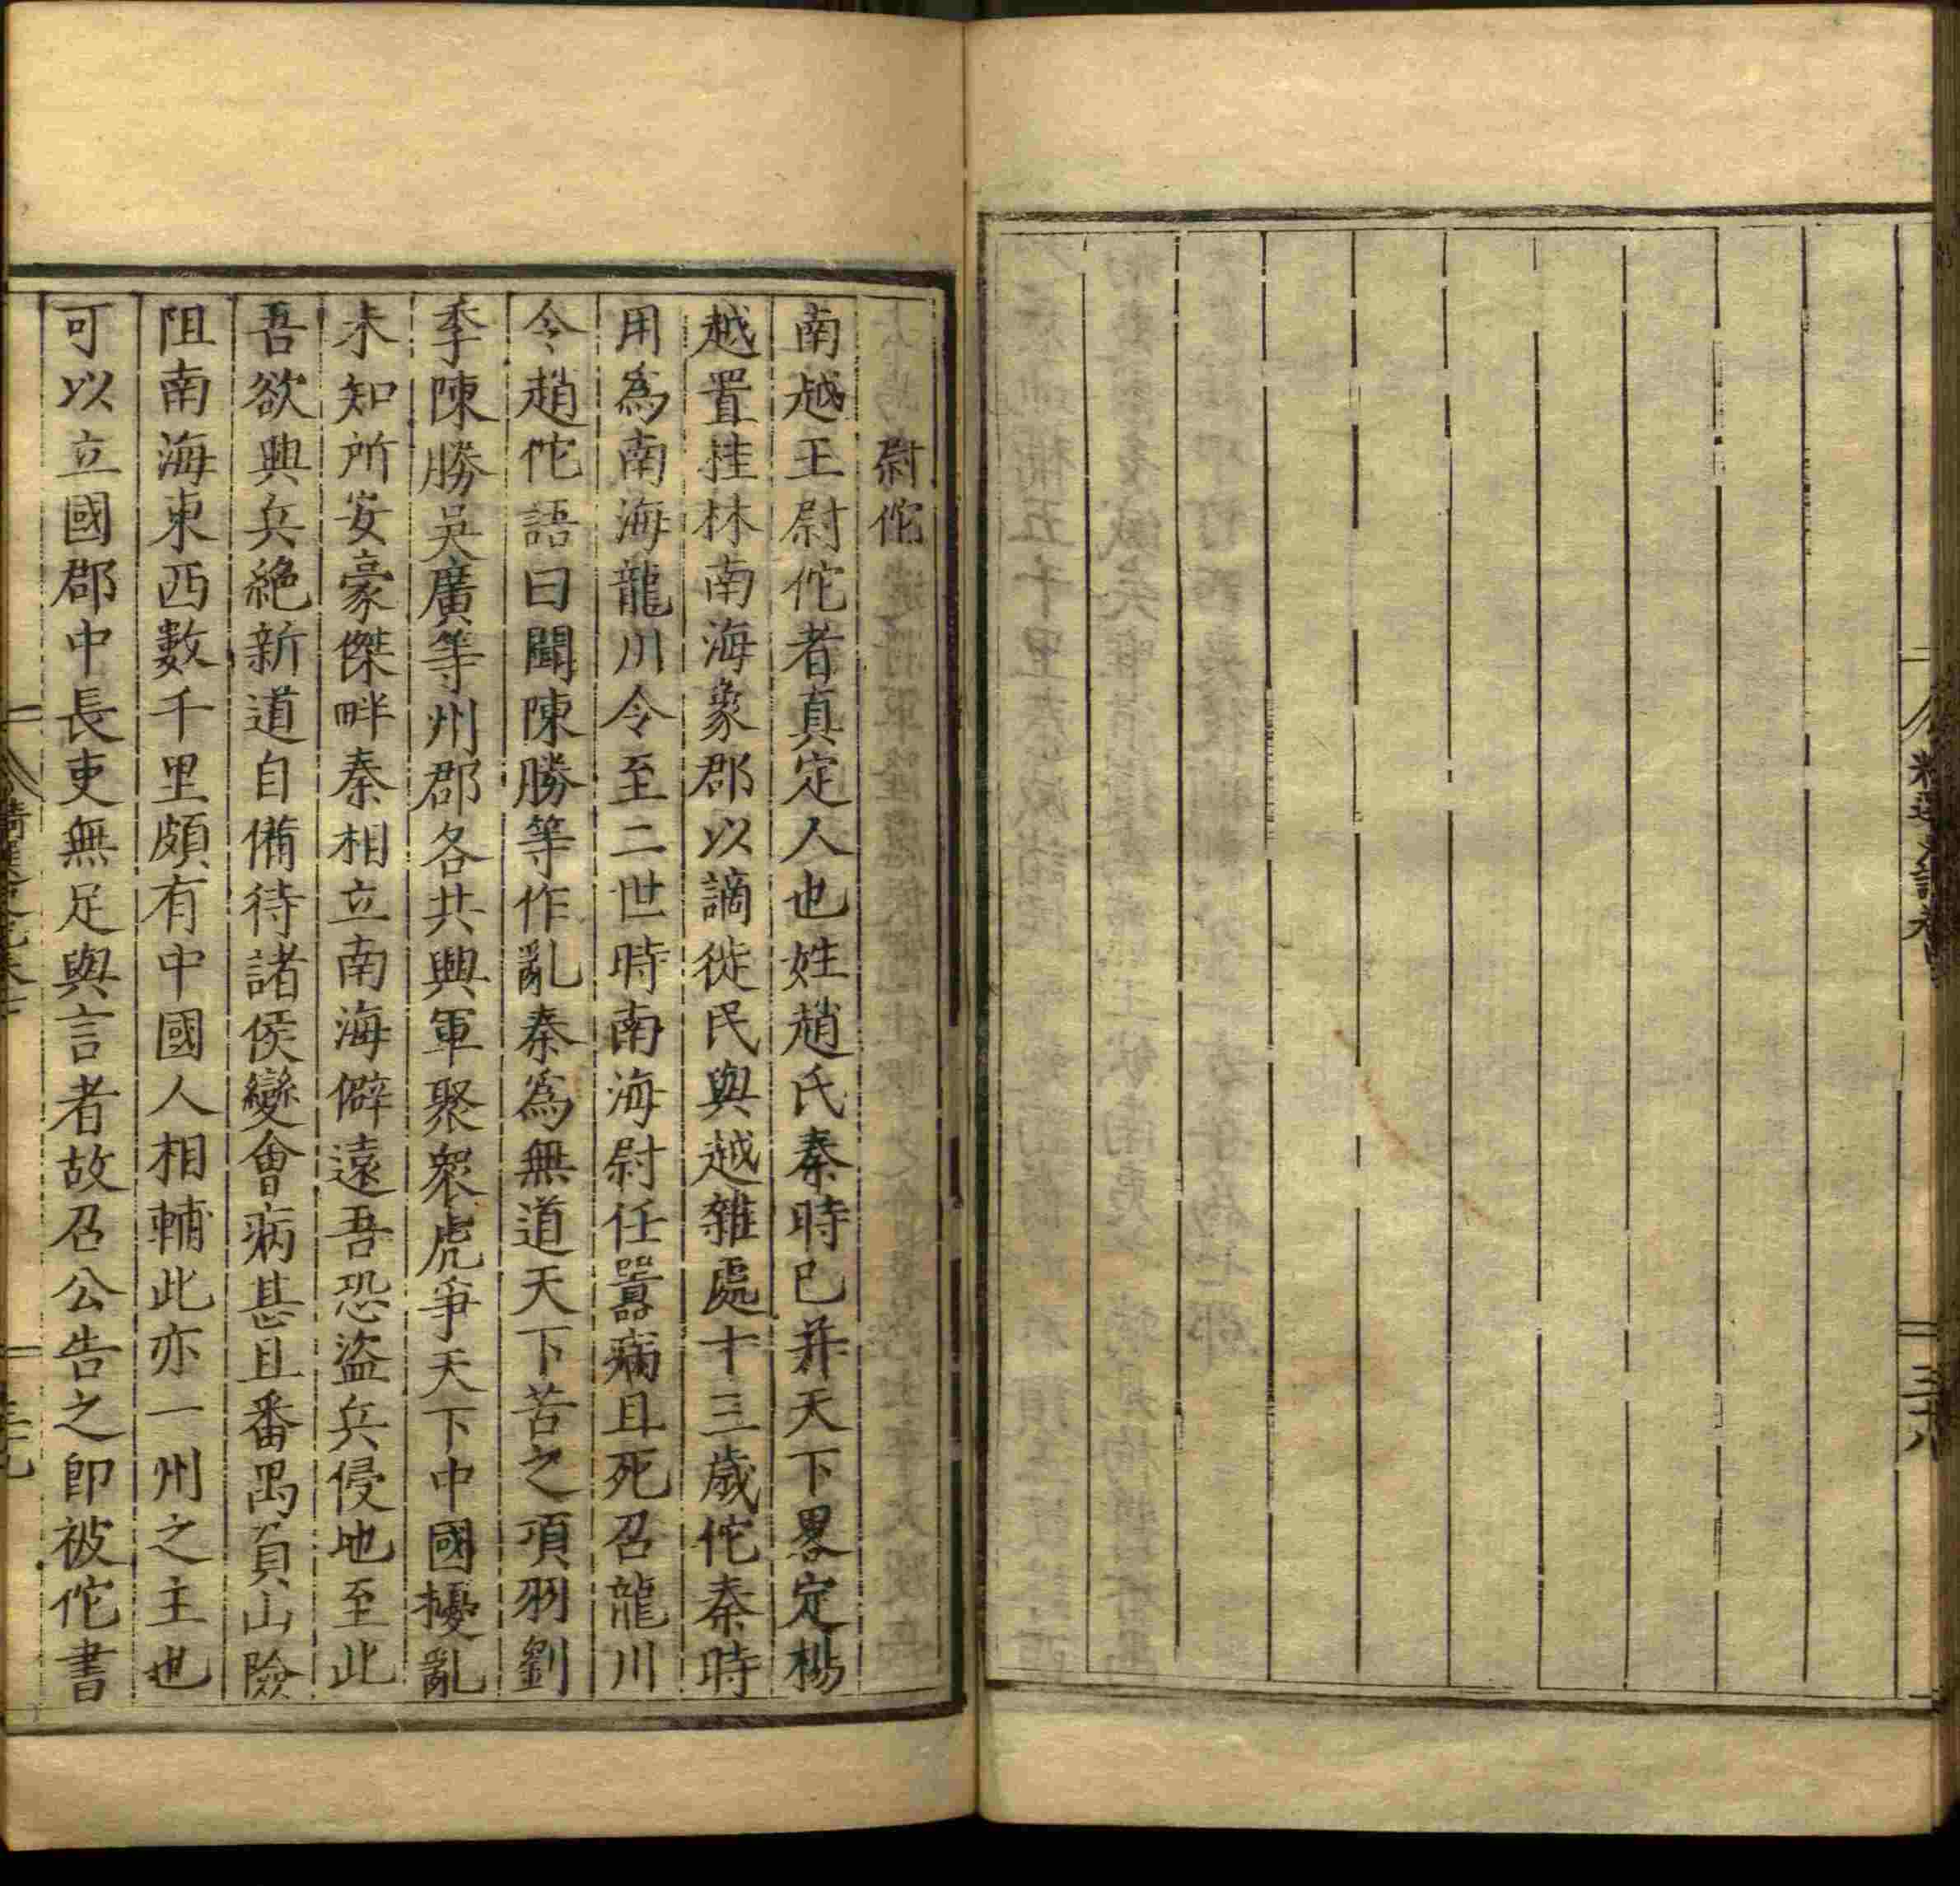 三十八
尉佗
南越王尉佗者真定人也姓趙氏秦時已并天下畧定楊
越置桂林南海象郡以謫徙民與越雜處十三歲佗秦時
用為南海龍川令至二世時南海尉任囂病且死召龍川
令趙佗語曰聞陳勝等作亂秦為無道天下苦之項羽劉
季陳勝吳廣等州郡各共興軍聚衆虎爭天下中國擾亂
未知所安豪傑畔秦相立南海僻遠吾恐盜兵侵地至此
吾欲興兵絶新道自備待諸侯變會病甚且番禺負山險
阻南海東西數千里頗有中國人相輔此亦一州之主也
可以立國郡中長吏無足與言者故召公告之即被佗書